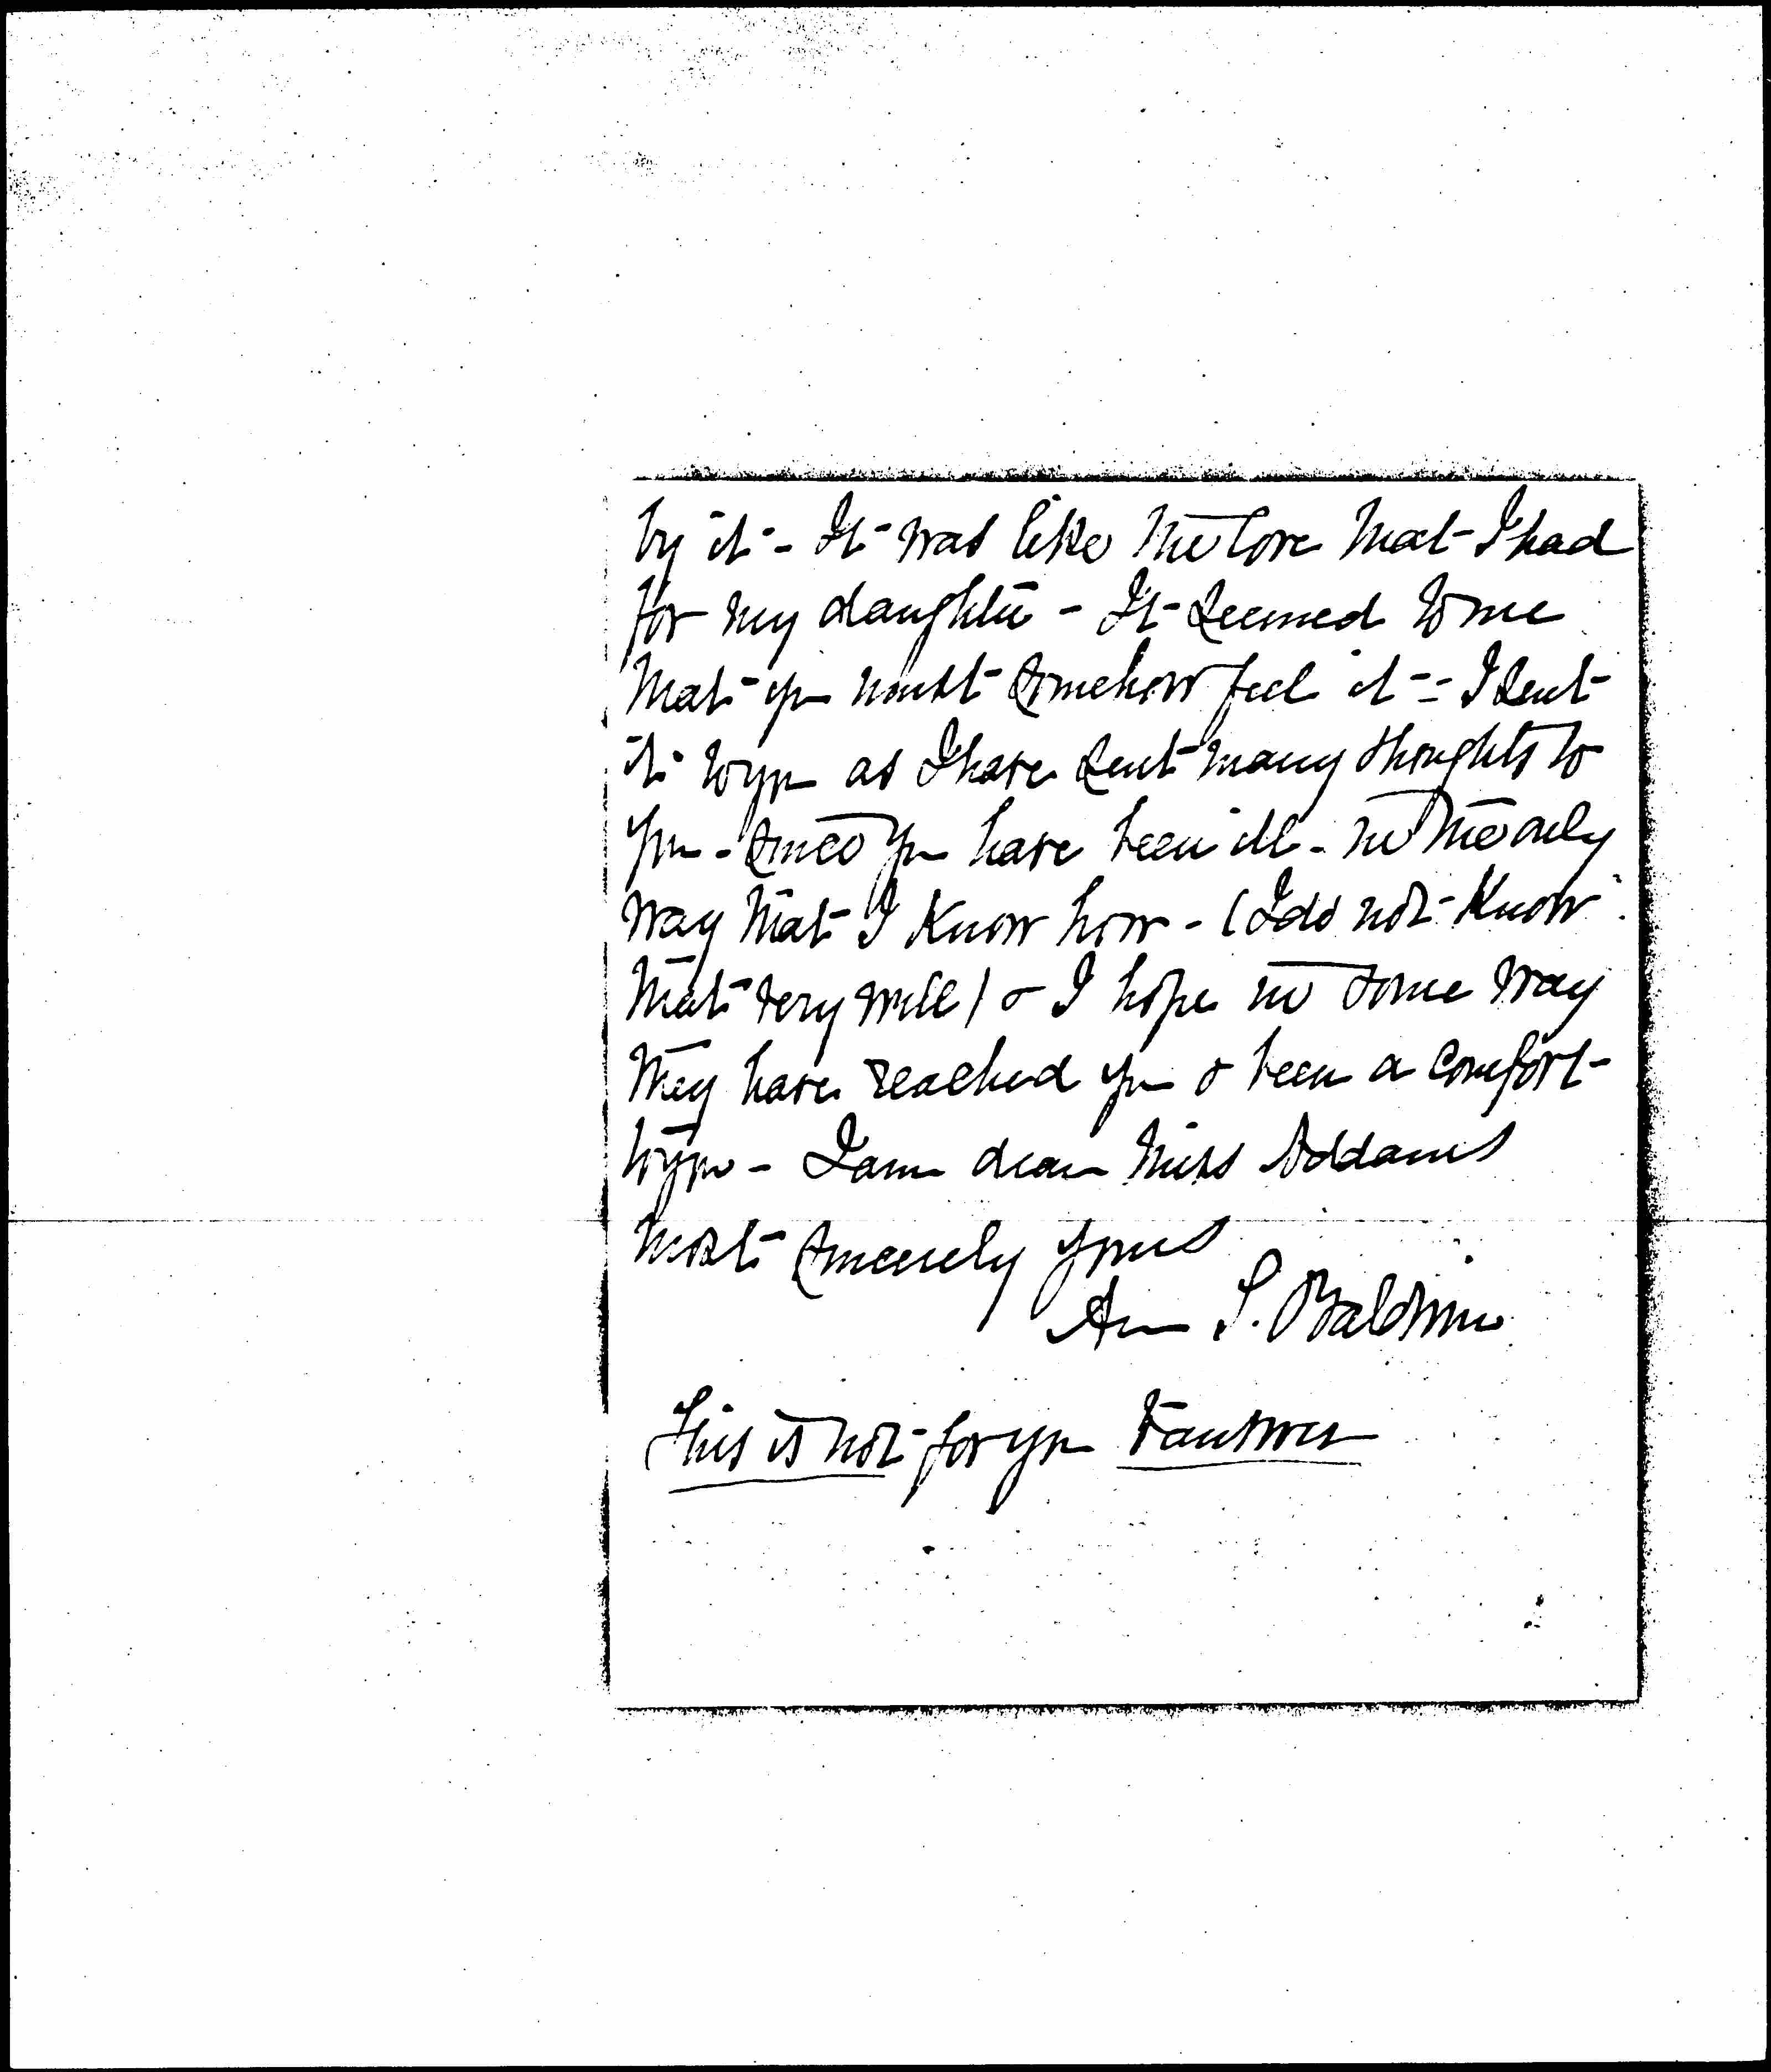 by it - It was like the love that I had
for my daughter - It seemed to me
that you must somehow feel it - - I sent
it to you as I have sent many thoughts to
you - since you have been ill - in the only
way that I know how - (I do not know
that very well) & I hope in some way
they have reached you & been a comfort -
to you - I am dear Miss Addams
most sincerely yours
Ann S. Baldwin
This is not for you to answer